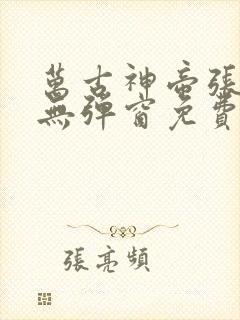 萬古神帝張
無彈窗免費
張亮頻